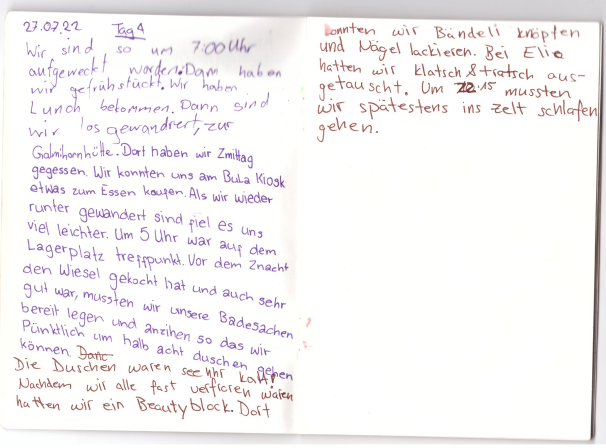 27.07.22 Tag 4
Wir sind so um 7:00 Uhr
aufgeweckt worden. Dann haben
wir gefrühstückt. Wir haben
Lunch bekommen. Dann sind
wir los gewandrert, zur
Galmihornhütte. Dort haben wir Zmittag
gegessen. Wir konnten uns am Bula Kiosk
etwas zum Essen kaufen. Als wir wieder
runter gewandert sind fiel es uns
viel leichter. Um 5 Uhr war auf dem
Lagerplatz treffpunkt. Vor dem Znacht
den Wiesel gekocht hat und auch sehr
gut war, mussten wir unsere Badesachen
bereit legen und anzihen so das wir
Pünktlich um halb acht duschen gehen
können. Danc
Die Duschen waren seehhr kalt!
Nachdem wir alle fast verfroren waren
hatten wir ein Beautyblock. Dort
konnten wir Bändeli knöpfen
und Nägel lackieren. Bei Elio
hatten wir klatsch & tratsch aus-
getauscht. Um 22.15 mussten
wir spätestens ins zelt schlafen
gehen.